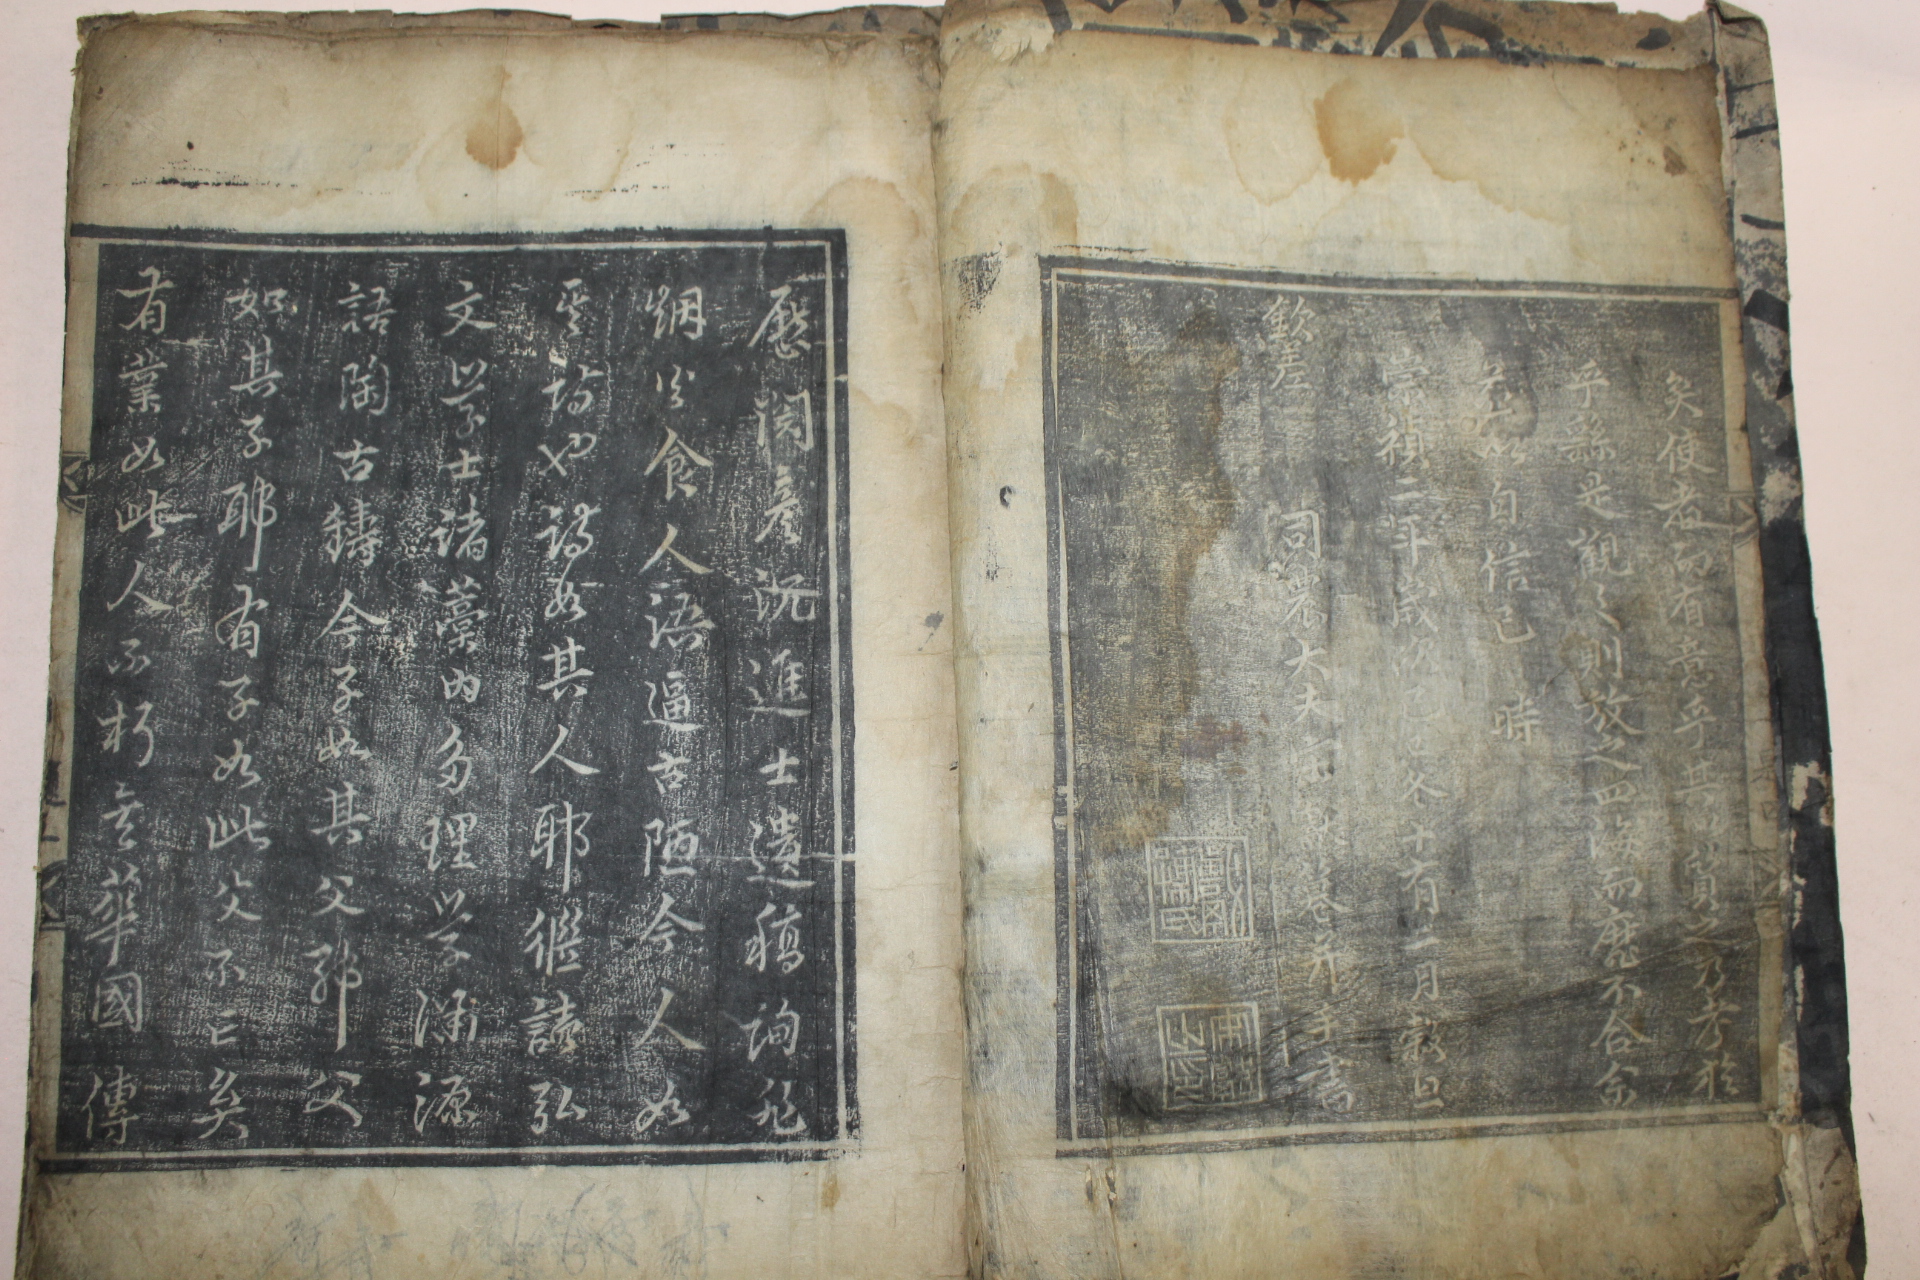 矣使者而有意乎其以質之乃考於
乎繇是觀之則放之四海而靡不合余
益以自信已 時
崇禎二年歲次己巳冬十有二月穀旦
欽差 司農大夫 手書
歷閱 況進士遺稿詢非
烟火食人語逼古陋今人如
其詩也詩如其人耶繼讀弘
文學士諸藁內多理學淵源
語陶古鑄今子如其父耶父
如其子耶有子如此父不亡矣
有業如此人不朽矣華國傳